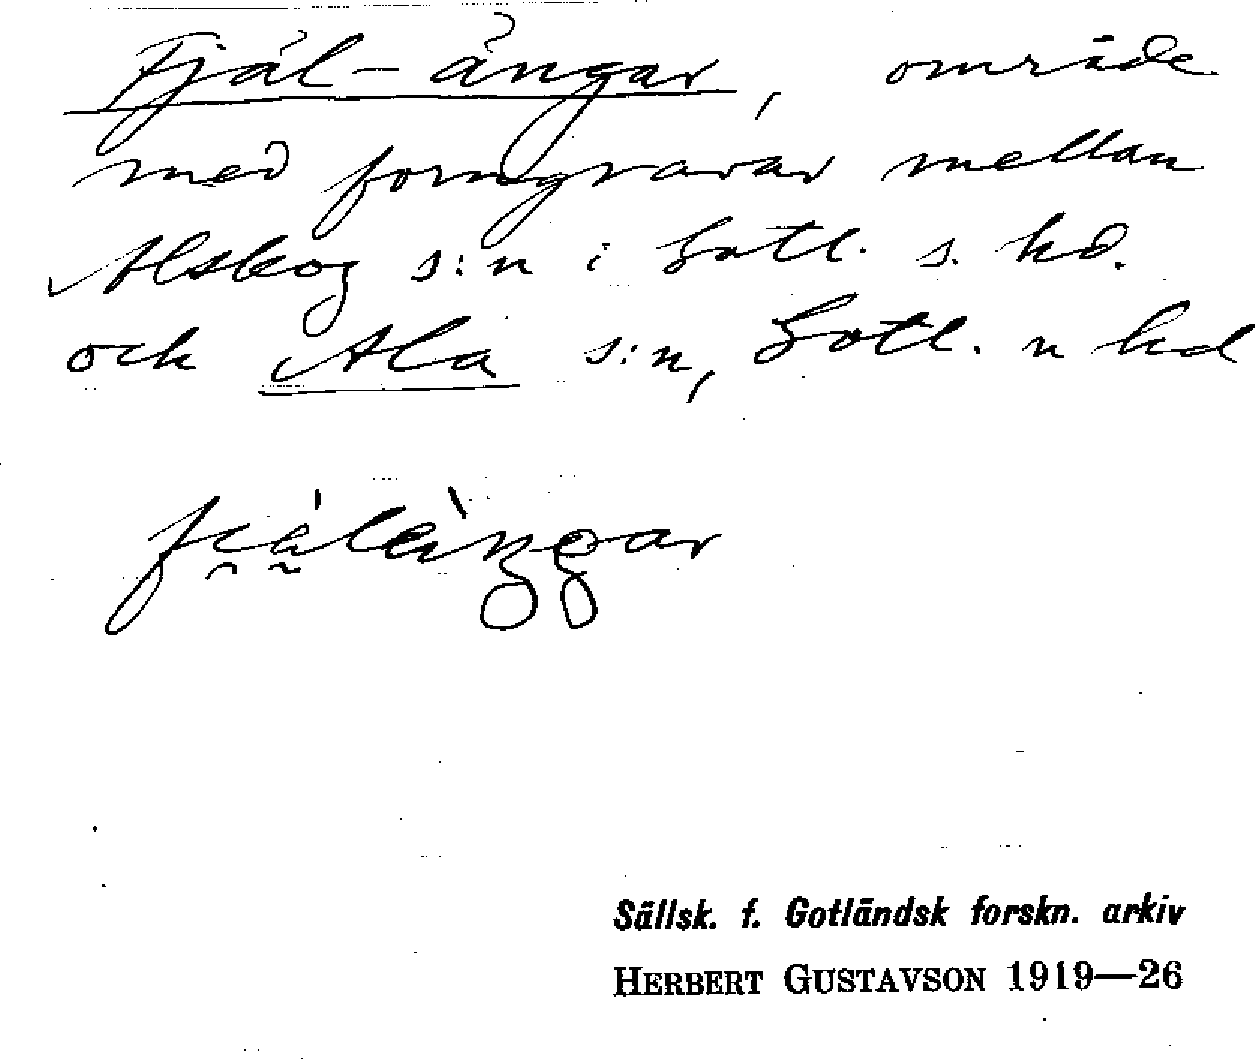 Fjäl-ängar, område
med forngravar mellan
Alskog s:n i Gotl. s. hd.
och Ala s:n, Gotl. n hd
Sällsk. f. Gotländsk forskn. arkiv
HERBERT GUSTAVSON 1919—26